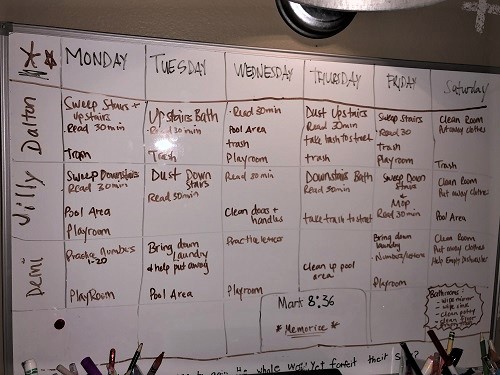 MONDAY TUESDAY WEDNESDAY THURSDAY FRIDAY Saturday
Dalton
Sweep Stairs +
upstairs
Read 30min
Trash
Upstairs Bath
Read 30min
Trash
Read 30min
Pool Area
trash
Playroom
Dust Upstairs
Read 30min
take trash to street
trash
Sweep Stairs
Read 30
Trash
Playroom
Clean Room
Put away clothes
Trash
Jilly
Sweep Downstairs
Read 30min
Pool Area
Playroom
Dust Down
Stairs
Read 30min
Read 30min
Clean doors +
handles
Downstairs Bath
Read 30min
take trash to street
Sweep Down
Stairs
&
Mop
Read 30min
Clean Room
Put away clothes
Pool Area
Demi
Practice Numbers
1-20
PlayRoom
Bring down
Laundry
& help put away
Pool Area
Practice letters
Playroom
Clean up pool
area
Bring down
laundry
Numbers/letters
Playroom
Clean Room
Put away clothes
Help Empty Dishwasher
Bathrooms:
- wipe mirror
- wipe sink
- clean potty
- clean floor
Mark 8:36
*Memorize*
whole world yet forfeit their